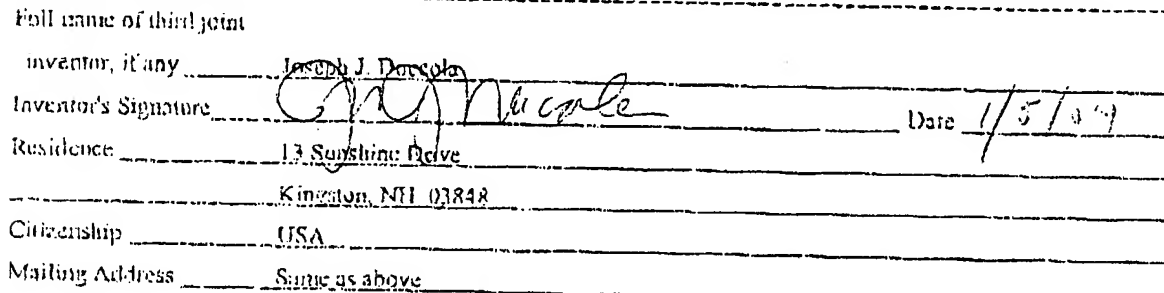 Full name of third joint
inventor, if any Joseph J. Doccola
Inventor's Signature Date 1/5/09
Residence 13 Sunshine Drive
Kingston, NH 03848
Citizenship USA
Mailing Address Same as above